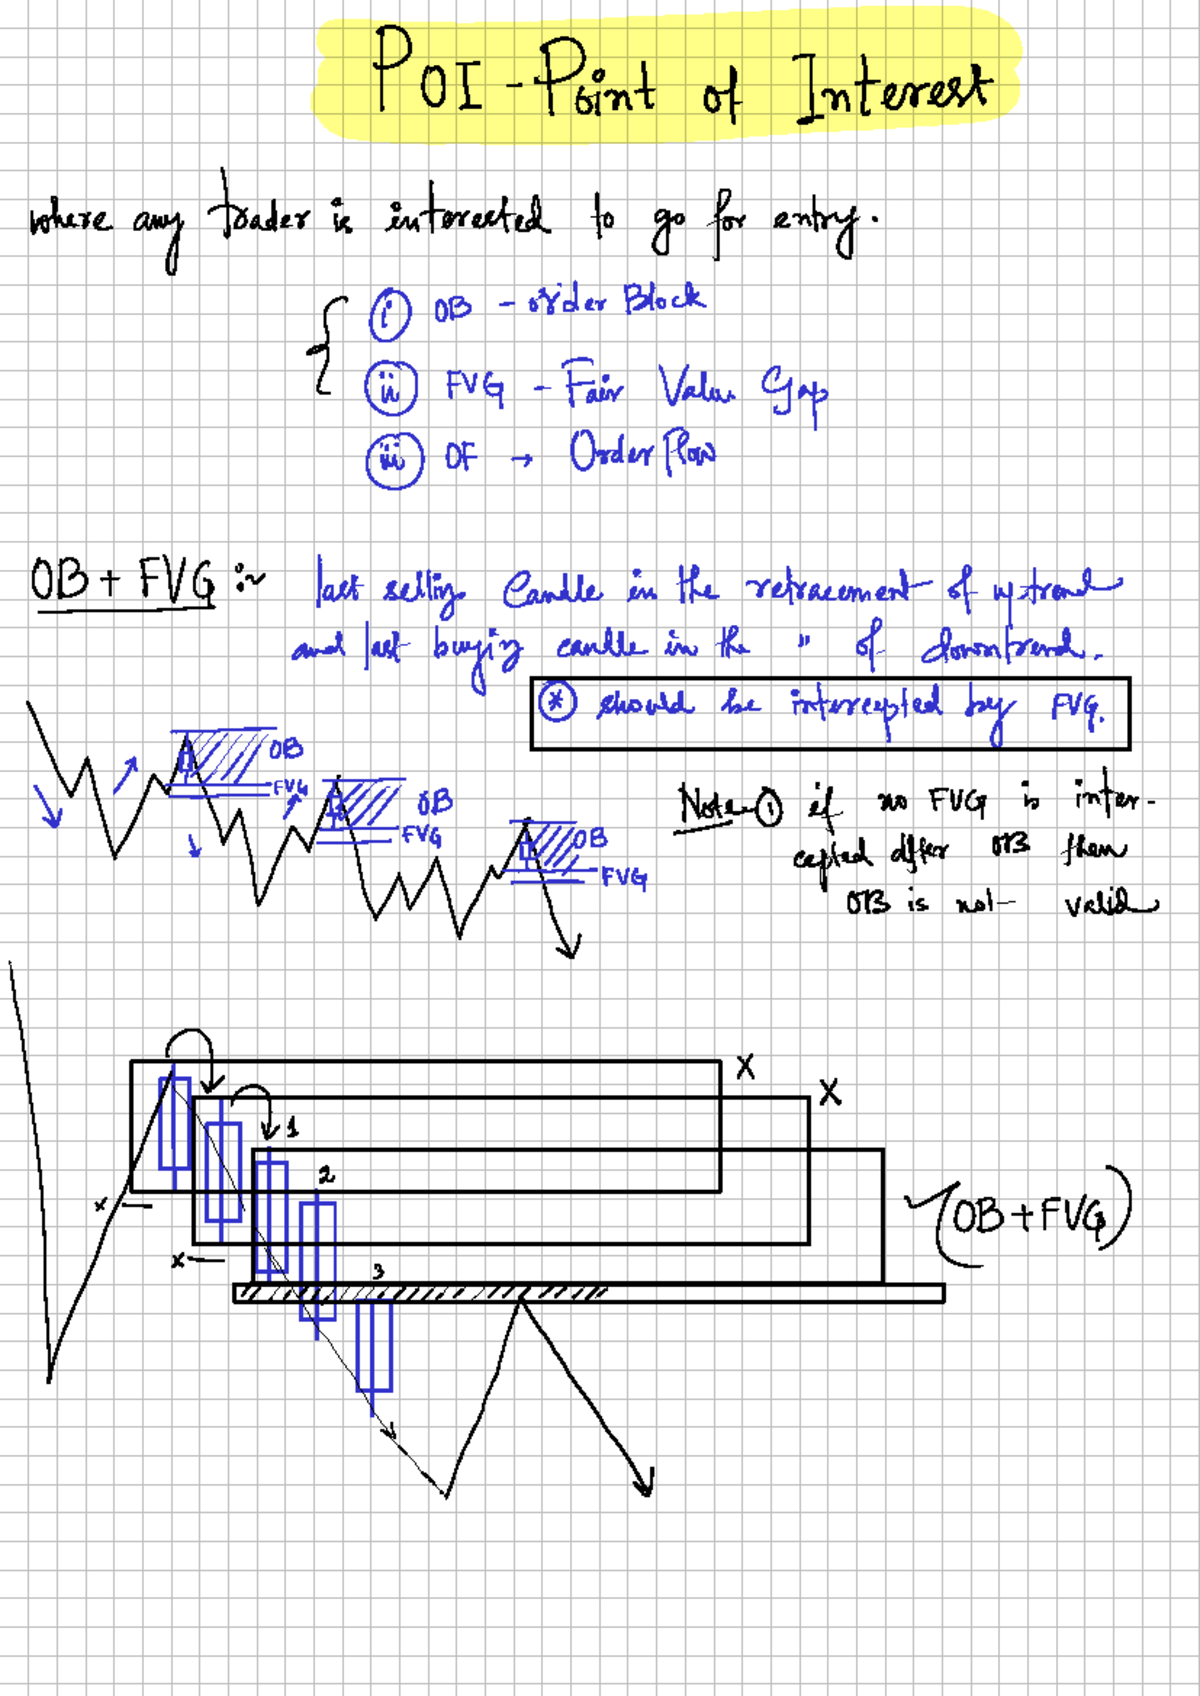 POI - Point of Interest
where any trader is interested to go for entry.
i OB - order Block
ii FVG - Fair Value Gap
iii OF → Order Flow
OB + FVG :~ last selling Candle in the retracement of uptrend
and last buying candle in the " of downtrend.
* should be intercepted by FVG.
OB
FVG
OB
FVG
OB
FVG
Note ① if no FVG is inter-
cepted after OB then
OB is not valid
X
X
1
2
x
x
3
✓(OB+FVG)